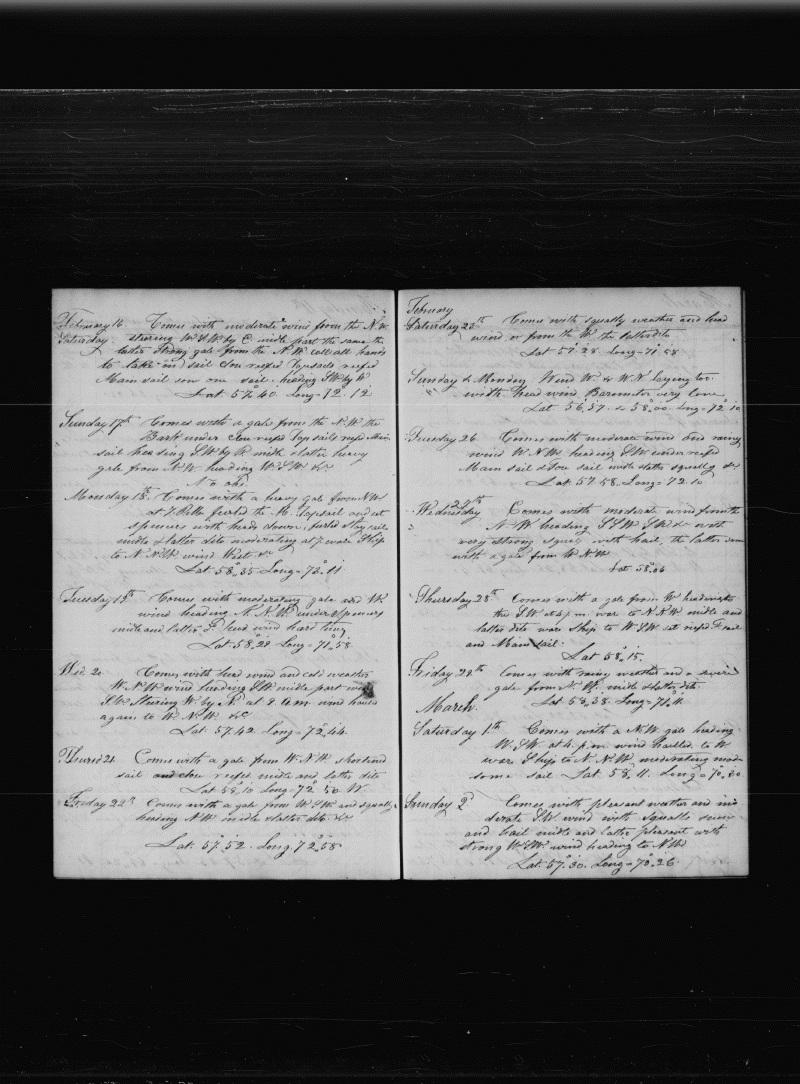 February 16. Comes with moderate wind from the N.W.
Saturday. stering W.S.W by C. midle part the same the
latter Strong gale from the N.W. call all hands
to take in sail Dou reefed Topsails reefed
Main sail sow one sail. heading S.W by W
Lat 57°.40. Long = 72°.12.
Sunday 17th Comes with a gale from the N.W. the
Bark under Dou reefs Top sails reefd Main
sail heading S.W by W midle & latter heavy
gale from N.W. heading W.S.W &c
No obs.
Monday 18th. Comes with a heavy gale from N.W
at 7 Bells ferled the M. Topsail and set
spencers with heads down, furled Stay sail
midle & latter dito moderating at 7. ware Ship
to N.N.W. wind West. &c
Lat 58°.35 Long = 72°.11.
Tuesday 19th. Comes with moderating gale and
wind heading N.N.W. under spencers
midle and latter Do head wind hard times
Lat. 58.28 Long = 71°.58
Wed. 20 Comes with head wind and cold weather
W.N.W. wind heading S.W. midle part
S.W. Stering W by N. at 9 A.m. wind hauled
again to W.N.W. &c
Lat. 57.42. Long = 72°.44.
Thursd 21 Comes with a gale from W.N.W shortened
sail and close reefed midle and latter dito
Lat 58.10 Long = 72°.50 W.
Friday 22d Comes with a gale from W.S.W. and squally
heading N.W. midle & latter dito &c
Lat. 57.52. Long. 72°.58
February
Saturday 23th Comes with squally weather and head
wind or from the W. the latter dito
Lat 57°.28. Long = 71°.58
Sunday & Monday Wind W. & W.N laying too
with head wind Barometor very low
Lat 56.57. & 58°.00. Long = 72°.10
Tuesday 26 Comes with moderate wind and rainy
wind W.N.W. heading S.W. under reefed
Main sail & Fow sail midle & latter squally &c
Lat. 57.58. Long = 72.10
27th
Wednesday Comes with moderate wind from the
N.W heading S.S.W S.W. &c with
very strong squals with hail, the latter
with a gale from W.N.W.
Lat. 58°.06
Thursday 28th Comes with a gale from W. heading to
the S.W. at 6 p.m. war to N.N.W midle and
latter dito ware Ship to W.S.W. set reefd F. sail
and Main Sail.
Lat 58°.15.
Friday 29th Comes with rainy weather and a severe
gale from N.W. midle & latter dito
Lat 58.38. Long = 71°.11.
March.
Saturday 1.th Comes with a N.W. gale heading
W.S.W. at 4. p.m. wind hauled to W
ware Ship to N.N.W. moderating made
some sail Lat. 58°.11. Long = 70°.50
Sunday 2d Comes with pleasant weather and mo-
derate S.W. wind with squalls snow
and hail midle and latter pleasant with
strong W.S.W. wind heading to N.W.
Lat. 57°.30. Long = 70°.26.